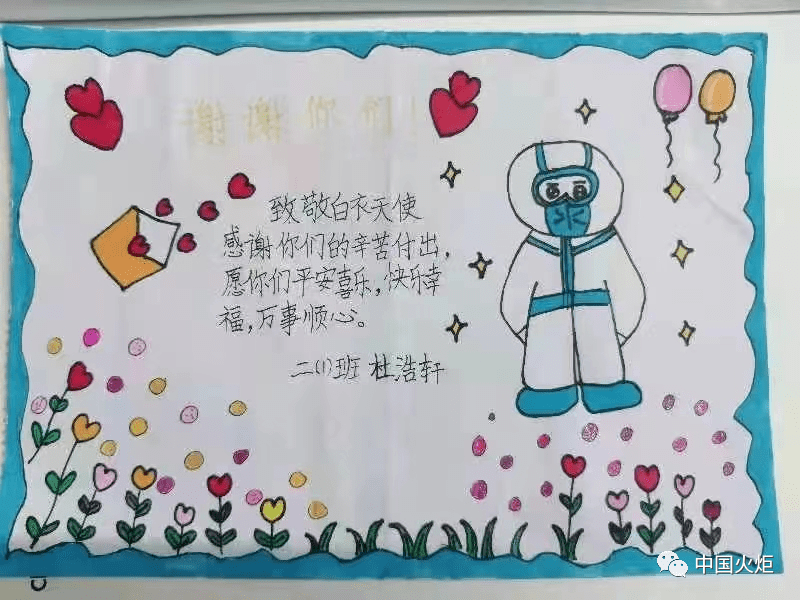 谢谢你们！
致敬白衣天使
感谢你们的辛苦付出，
愿你们平安喜乐，快乐幸
福，万事顺心。
二(1)班 杜浩轩
中国火炬